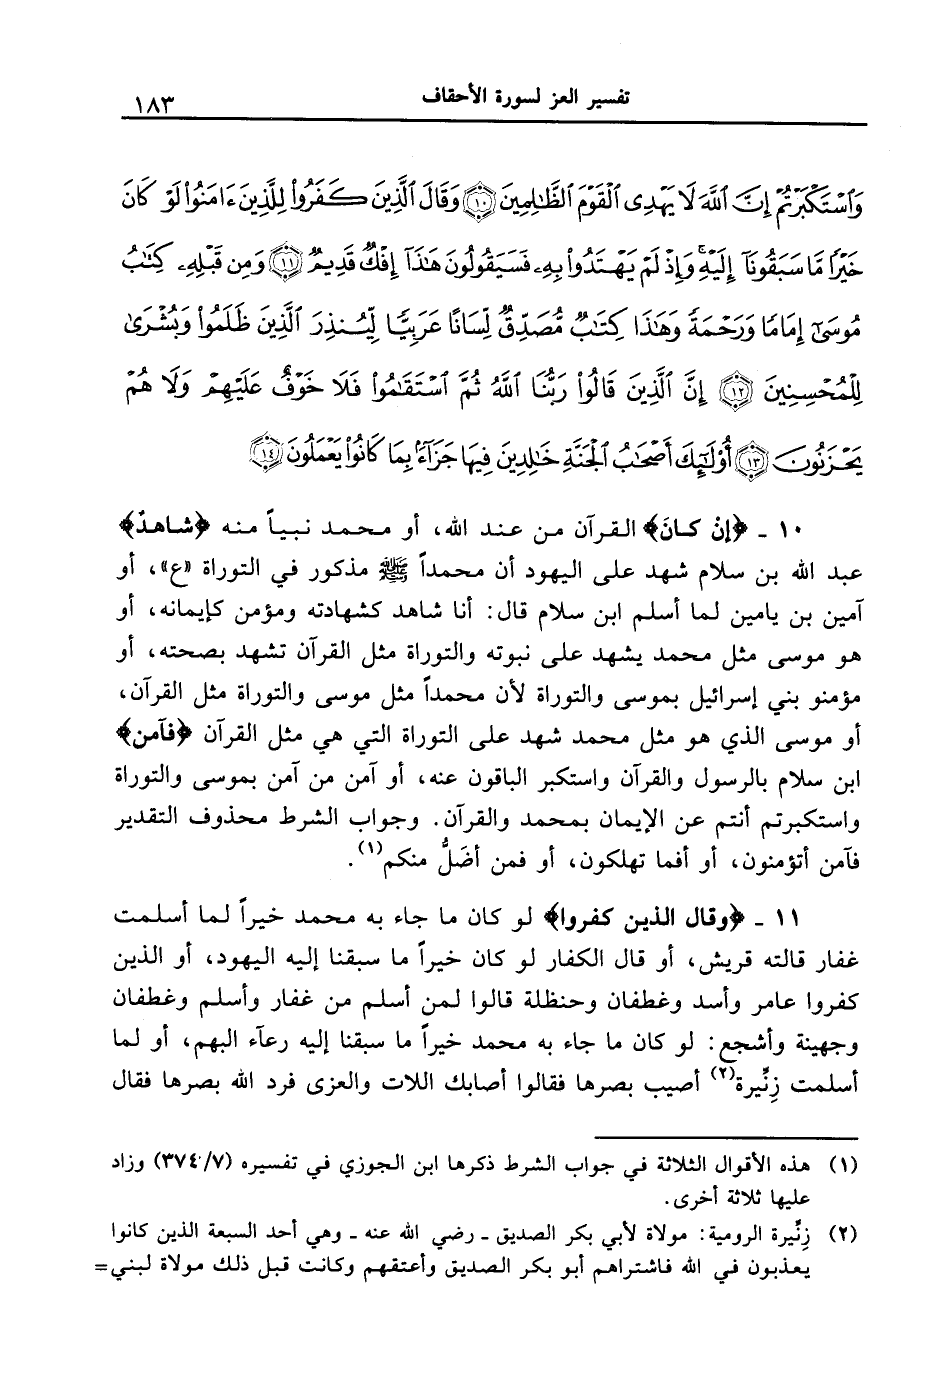 تفسير العز لسورة الأحقاف
١٨٣
وَٱسْتَكْبَرْتُمْ إِنَّ ٱللَّهَ لَا يَهْدِى ٱلْقَوْمَ ٱلظَّٰلِمِينَ ۝١٠ وَقَالَ ٱلَّذِينَ كَفَرُوا۟ لِلَّذِينَ ءَامَنُوا۟ لَوْ كَانَ
خَيْرًا مَّا سَبَقُونَآ إِلَيْهِ ۚ وَإِذْ لَمْ يَهْتَدُوا۟ بِهِۦ فَسَيَقُولُونَ هَٰذَآ إِفْكٌ قَدِيمٌ ۝١١ وَمِن قَبْلِهِۦ كِتَٰبُ
مُوسَىٰٓ إِمَامًا وَرَحْمَةً وَهَٰذَا كِتَٰبٌ مُّصَدِّقٌ لِّسَانًا عَرَبِيًّا لِّيُنذِرَ ٱلَّذِينَ ظَلَمُوا۟ وَبُشْرَىٰ
لِلْمُحْسِنِينَ ۝١٢ إِنَّ ٱلَّذِينَ قَالُوا۟ رَبُّنَا ٱللَّهُ ثُمَّ ٱسْتَقَٰمُوا۟ فَلَا خَوْفٌ عَلَيْهِمْ وَلَا هُمْ
يَحْزَنُونَ ۝١٣ أُو۟لَٰٓئِكَ أَصْحَٰبُ ٱلْجَنَّةِ خَٰلِدِينَ فِيهَا جَزَآءًۢ بِمَا كَانُوا۟ يَعْمَلُونَ ۝١٤
١٠ ـ ﴿إن كانَ﴾ القرآن من عند الله، أو محمد نبياً منه ﴿شاهدٌ﴾
عبد الله بن سلام شهد على اليهود أن محمداً ﷺ مذكور في التوراة «ع»، أو
آمين بن يامين لما أسلم ابن سلام قال: أنا شاهد كشهادته ومؤمن كإيمانه، أو
هو موسى مثل محمد يشهد على نبوته والتوراة مثل القرآن تشهد بصحته، أو
مؤمنو بني إسرائيل بموسى والتوراة لأن محمداً مثل موسى والتوراة مثل القرآن،
أو موسى الذي هو مثل محمد شهد على التوراة التي هي مثل القرآن ﴿فآمن﴾
ابن سلام بالرسول والقرآن واستكبر الباقون عنه، أو آمن من آمن بموسى والتوراة
واستكبرتم أنتم عن الإيمان بمحمد والقرآن. وجواب الشرط محذوف التقدير
فآمن أتؤمنون، أو أفما تهلكون، أو فمن أضَلُّ منكم(١).
١١ ـ ﴿وقال الذين كفروا﴾ لو كان ما جاء به محمد خيراً لما أسلمت
غفار قالته قريش، أو قال الكفار لو كان خيراً ما سبقنا إليه اليهود، أو الذين
كفروا عامر وأسد وغطفان وحنظلة قالوا لمن أسلم من غفار وأسلم وغطفان
وجهينة وأشجع: لو كان ما جاء به محمد خيراً ما سبقنا إليه رعآء البهم، أو لما
أسلمت زِنِّيرة(٢) أصيب بصرها فقالوا أصابك اللات والعزى فرد الله بصرها فقال
(١) هذه الأقوال الثلاثة في جواب الشرط ذكرها ابن الجوزي في تفسيره (٣٧٤/٧) وزاد
عليها ثلاثة أخرى.
(٢) زِنِّيرة الرومية: مولاة لأبي بكر الصديق ـ رضي الله عنه ـ وهي أحد السبعة الذين كانوا
يعذبون في الله فاشتراهم أبو بكر الصديق وأعتقهم وكانت قبل ذلك مولاة لبني=